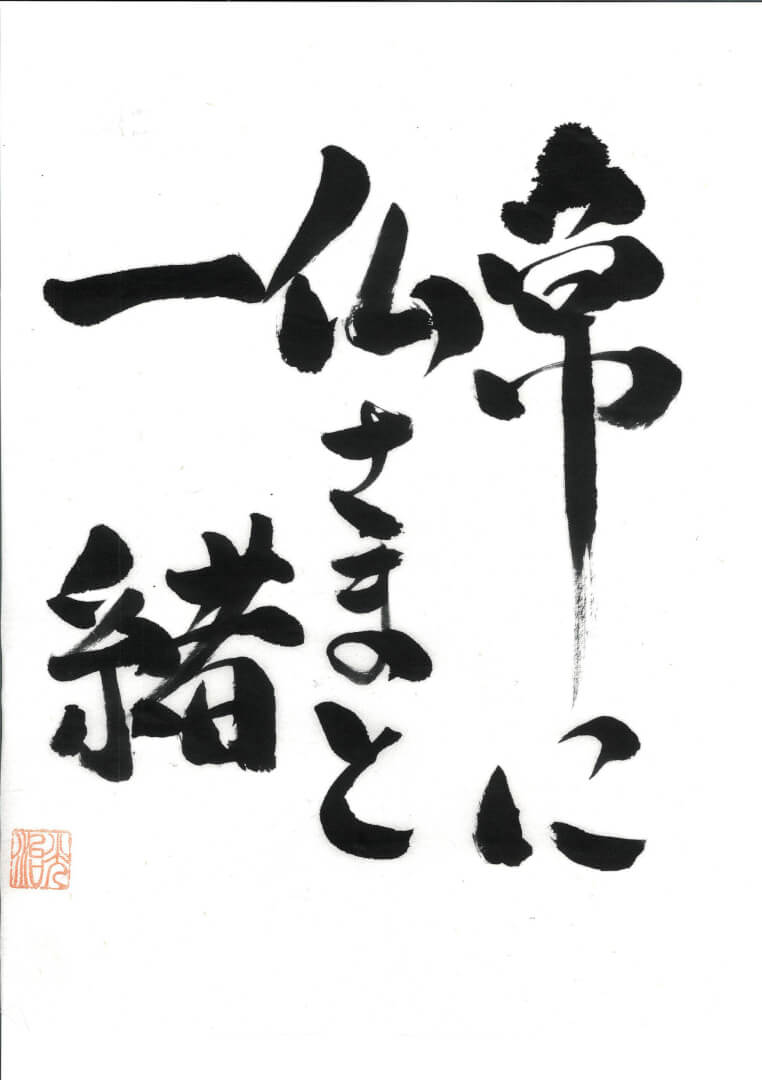 常に
仏さまと
一緒